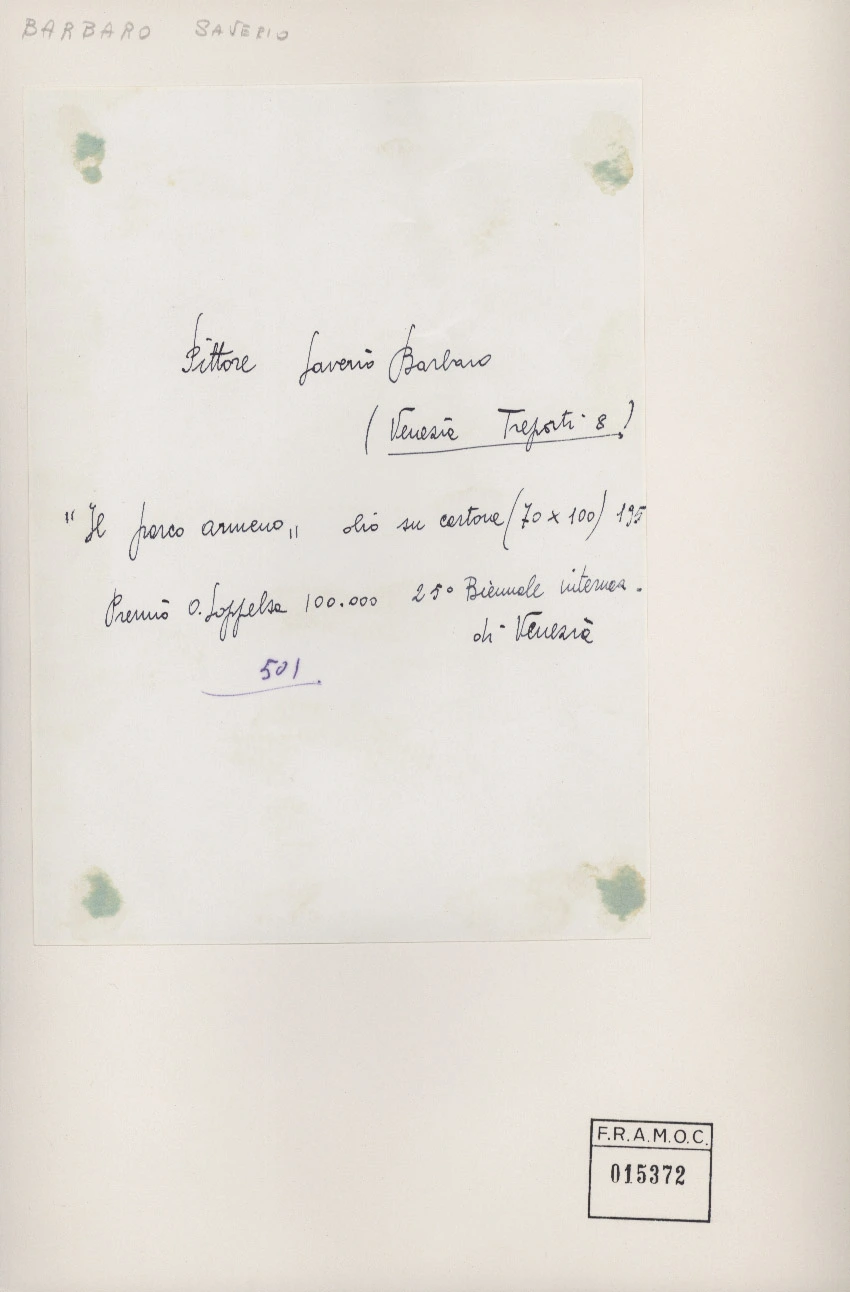 BARBARO SAVERIO
Pittore Saverio Barbaro
(Venezia Treporti 8)
"Il parco armeno" olio su cartone (70 x 100) 195
Premio O. Soppelsa 100.000 25º Biennale internaz.
di Venezia
501
F.R.A.M.O.C.
015372